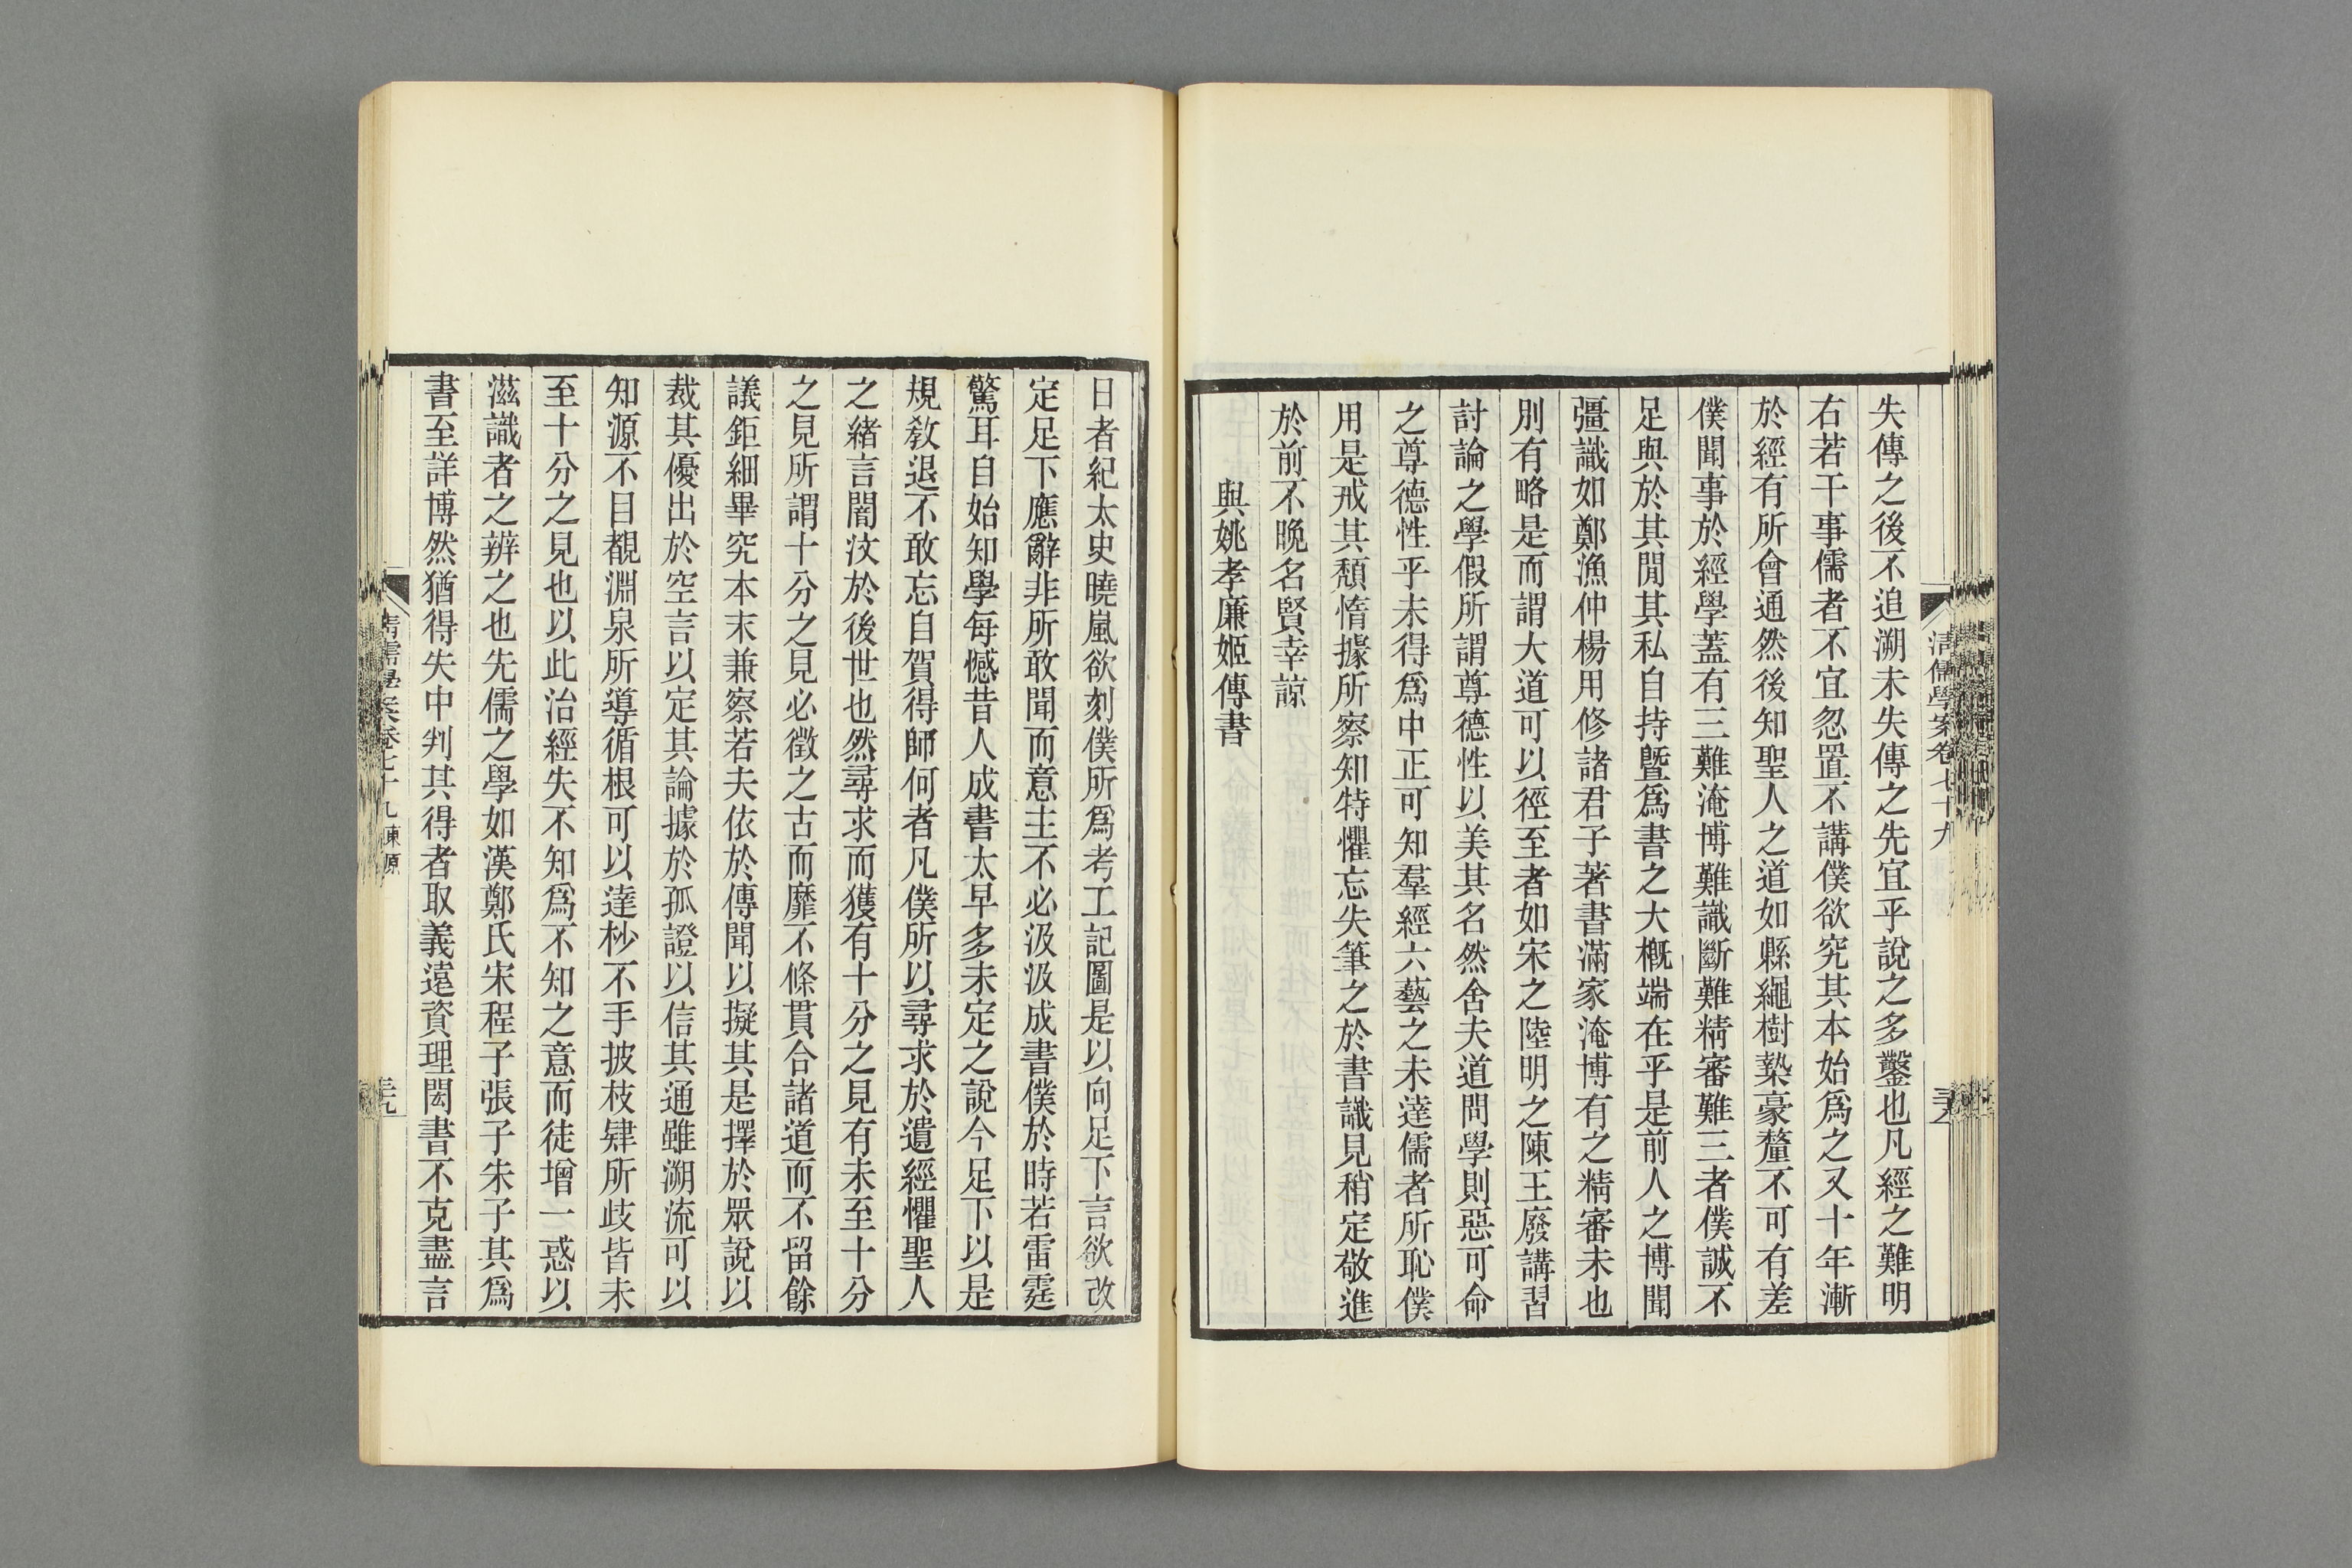 失傳之後不追溯未失傳之先宜乎說之多鑿也凡經之難明
右若干事儒者不宜忽置不講僕欲究其本始爲之又十年漸
於經有所會通然後知聖人之道如縣繩樹槷豪釐不可有差
僕聞事於經學蓋有三難淹博難識斷難精審難三者僕誠不
足與於其閒其私自持曁爲書之大槪端在乎是前人之博聞
彊識如鄭漁仲楊用修諸君子著書滿家淹博有之精審未也
別有略是而謂大道可以徑至者如宋之陸明之陳王廢講習
討論之學假所謂尊德性以美其名然舍夫道問學則惡可命
之尊德性乎未得爲中正可知羣經六藝之未達儒者所恥僕
用是戒其頹惰據所察知特懼忘失筆之於書識見稍定敬進
於前不晚名賢幸諒
與姚孝廉姬傳書
清儒學案卷七十九
日者紀太史曉嵐欲刻僕所爲考工記圖是以向足下言欲改
定足下應辭非所敢聞而意主不必汲汲成書僕於時若雷霆
驚耳自始知學每憾昔人成書太早多未定之說今足下以是
規敎退不敢忘自賀得師何者凡僕所以尋求於遺經懼聖人
之緒言闇汶於後世也然尋求而獲有十分之見有未至十分
之見所謂十分之見必徵之古而靡不條貫合諸道而不留餘
議鉅細畢究本末兼察若夫依於傳聞以擬其是擇於眾說以
裁其優出於空言以定其論據於孤證以信其通雖溯流可以
知源不目覩淵泉所導循根可以達杪不手披枝肄所歧皆未
至十分之見也以此治經失不知爲不知之意而徒增一惑以
滋識者之辨之也先儒之學如漢鄭氏宋程子張子朱子其爲
書至詳博然猶得失中判其得者取義遠資理閎書不克盡言